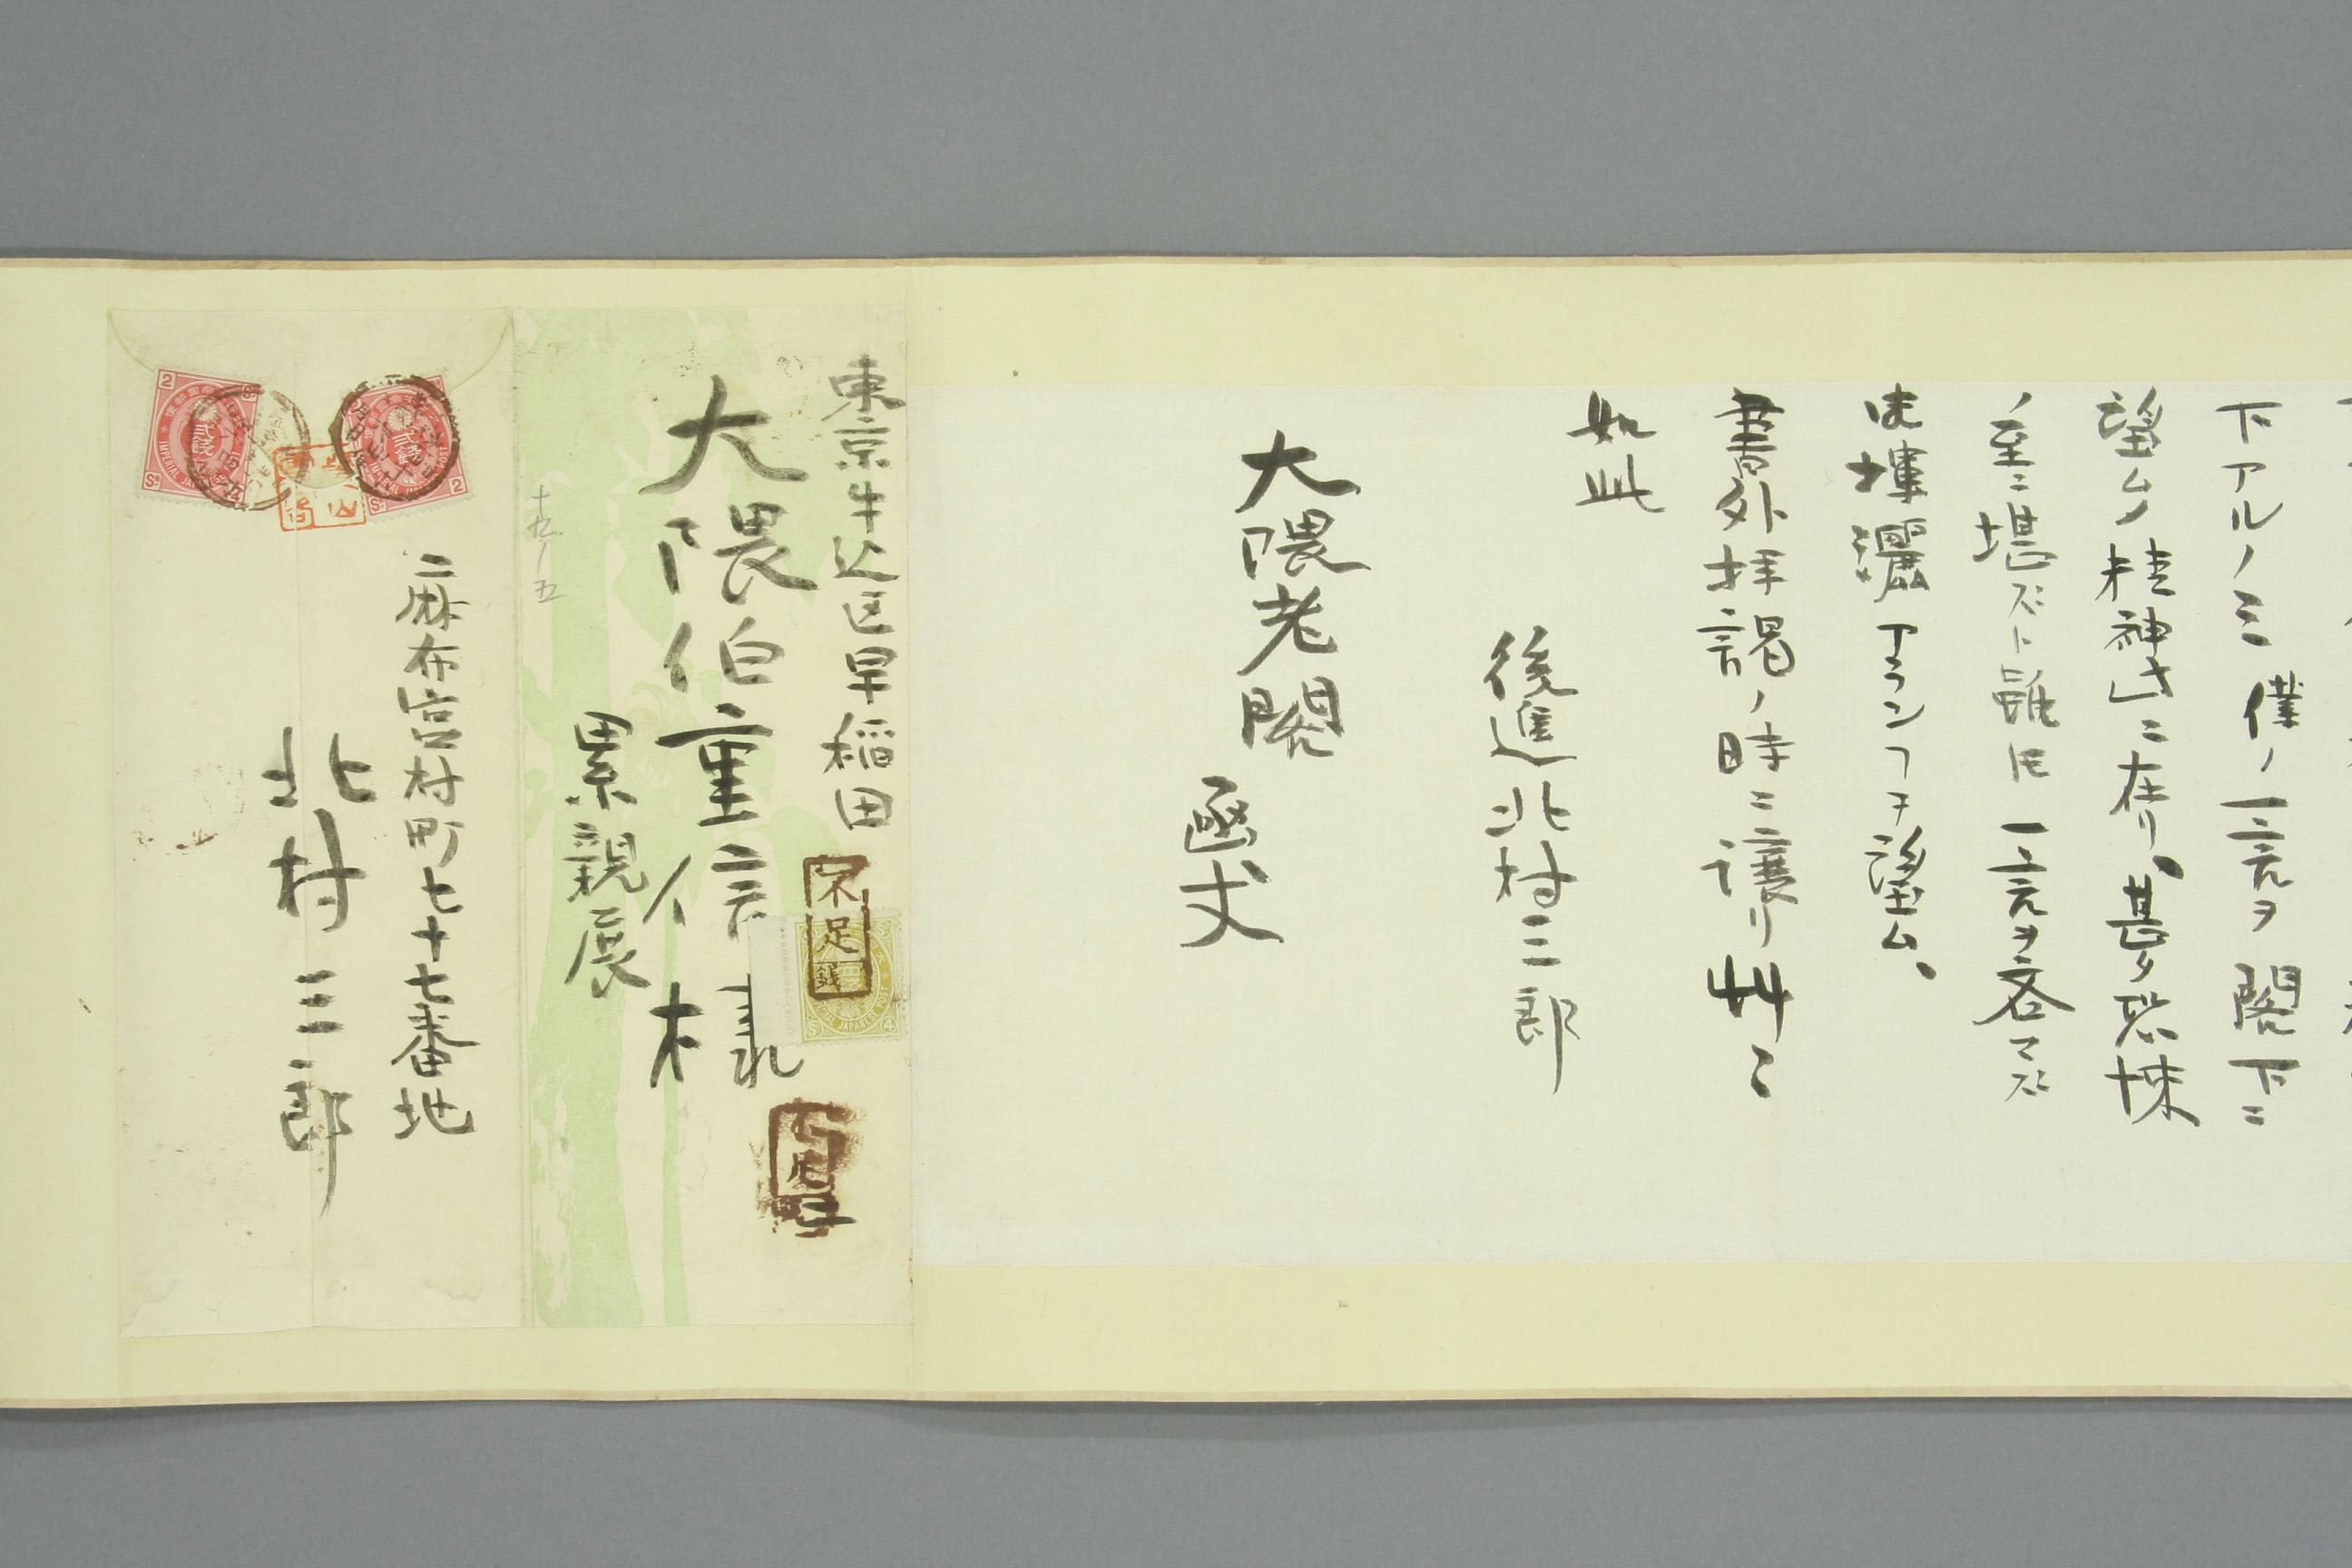 下アルノミ僕ノ一言ヲ閣下ニ
望ムノ精神此ニ在リ、甚タ恐悚
ノ至ニ堪ズト雖ヒ一言ヲ吝マズ
揮灑アランヿヲ望ム、
書外拝謁ノ時ニ譲リ艸〻
如此
後進北村三郎
大隈老閣
函丈
東京牛込区早稲田
大隈伯重信様
人
親展
不足
銭
不足
十九ノ五
麻布宮村町七十七番地
北村三郎
2
Sn
IMPERIAL
弐銭
POST
2
IMPERIAL JAPANESE POST
4